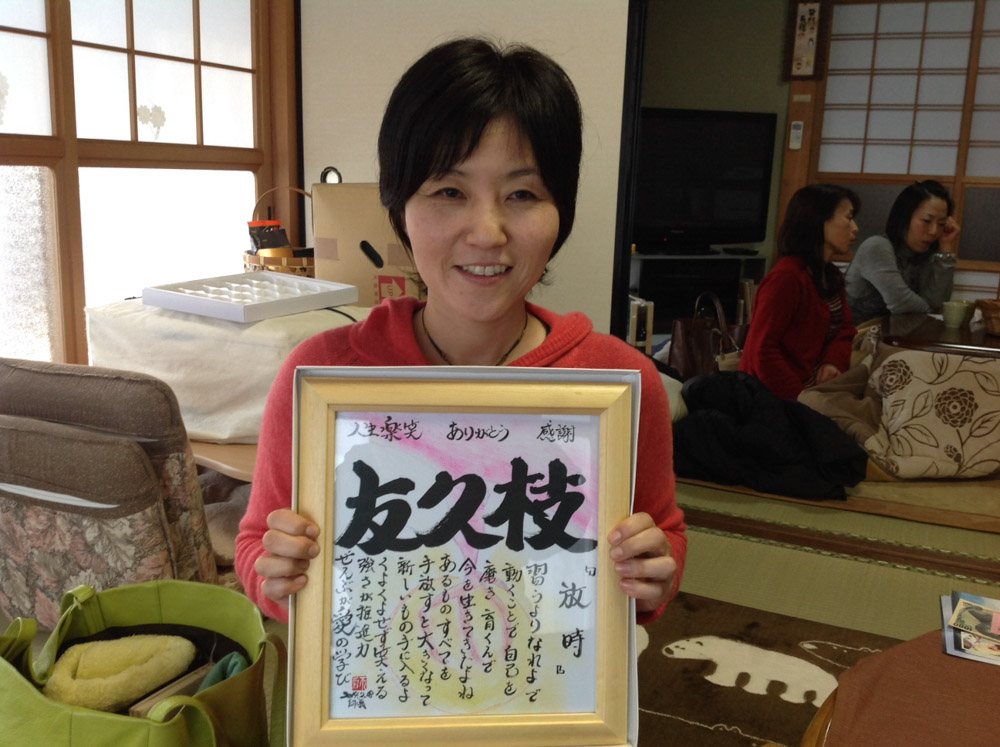 人生楽笑 ありがとう 感謝
友久枝
『放時』
習うよりなれよで
動くことで自己を
磨き育くんで
今を生きてきたよね
あるものすべてを
手放すと大きくなって
新しいもの手に入るよ
くよくよせず笑える
強さが推進力
ぜんぶが愛の学び